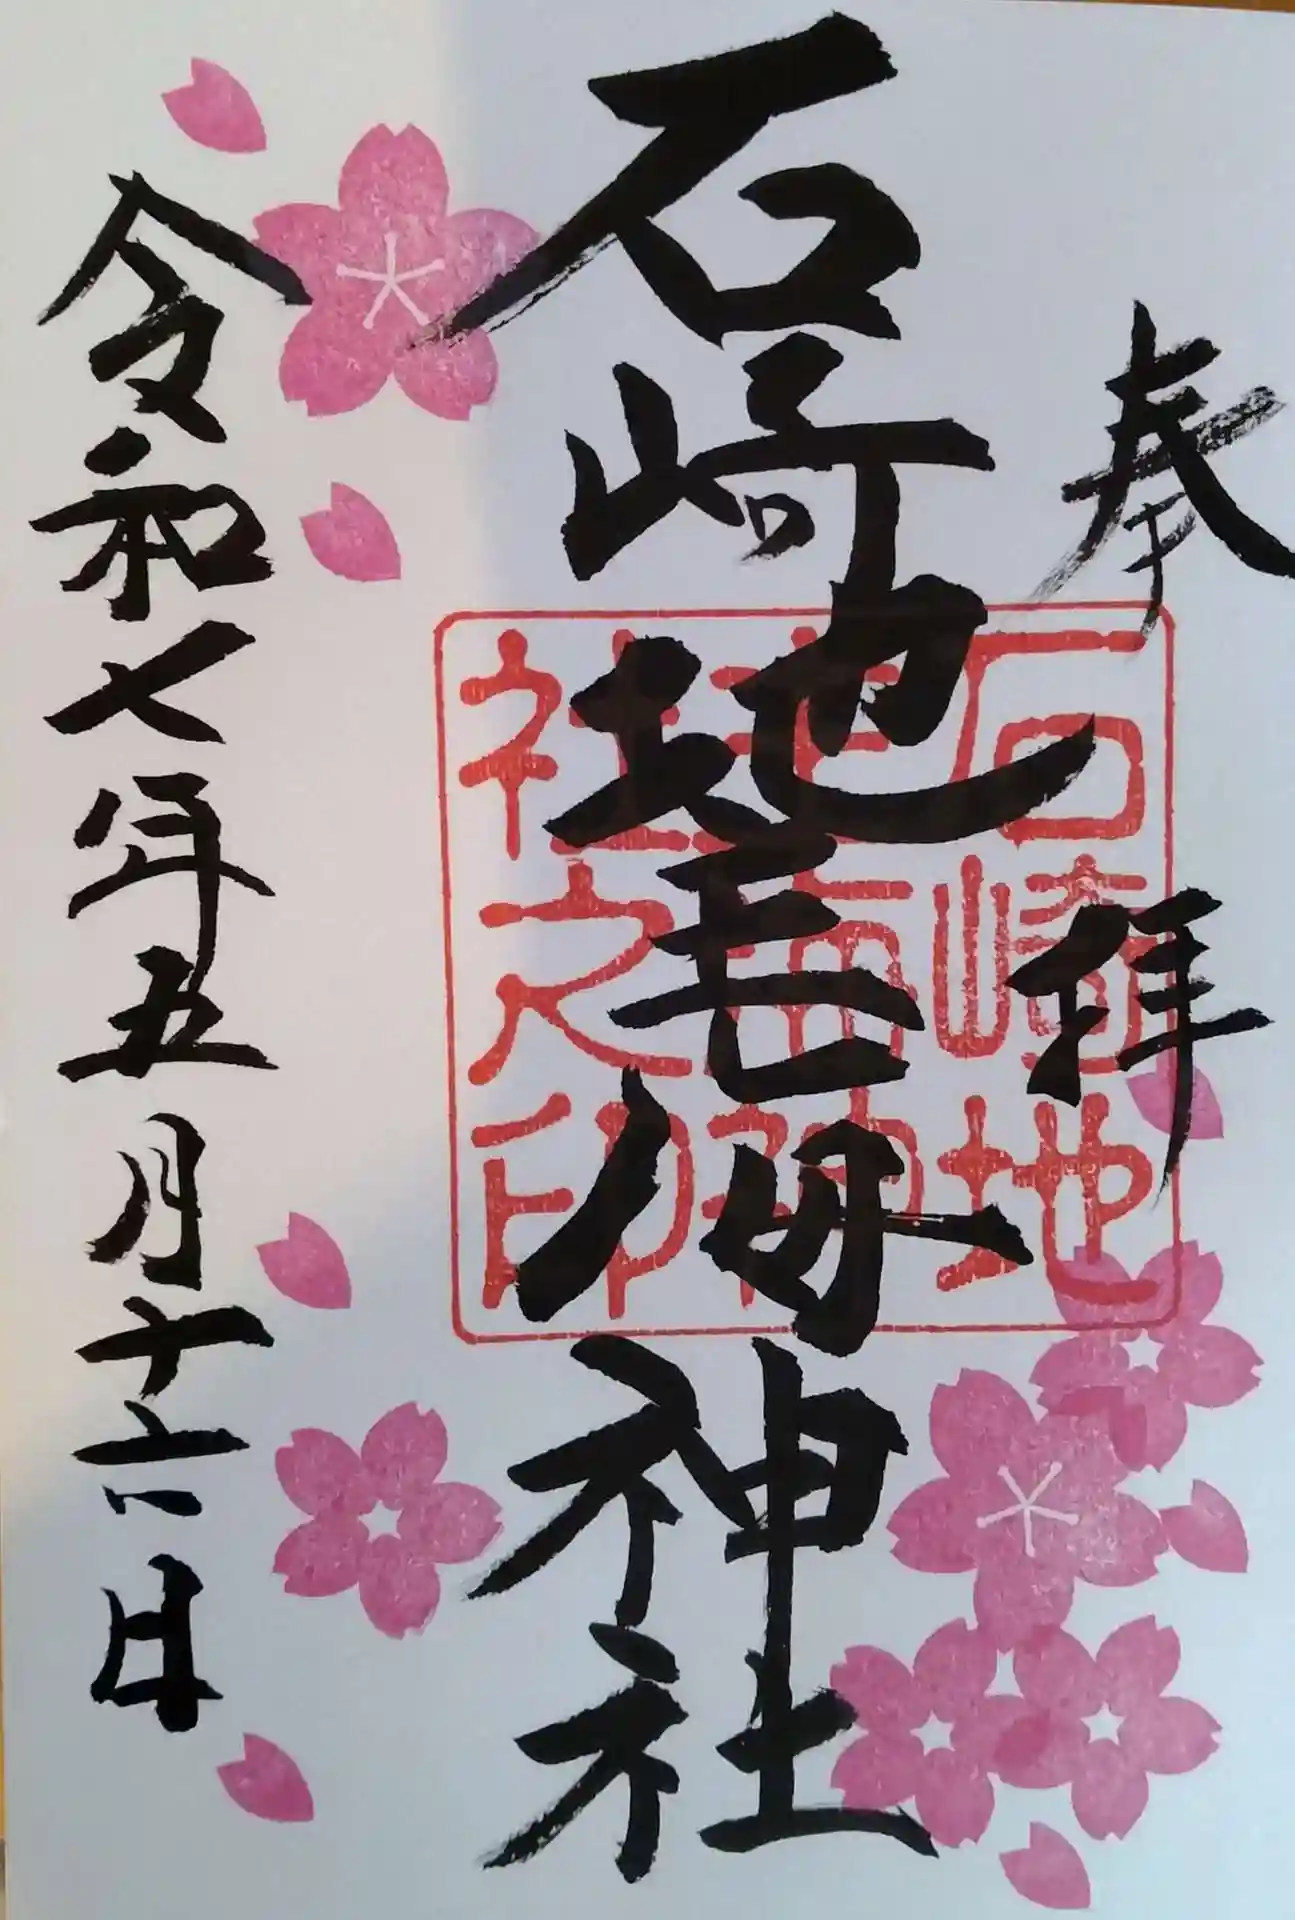 奉拝
石崎地主海神社
石崎地
主海神
社之印
令和七年五月十六日